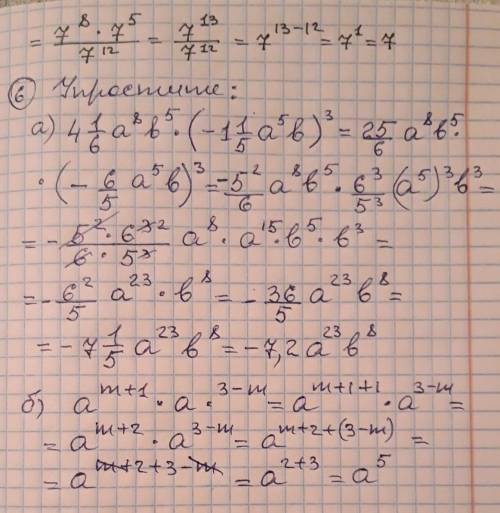 = 7⁸ · 7⁵ / 7¹² = 7¹³ / 7¹² = 7¹³⁻¹² = 7¹ = 7
⑥ Упростите:
а) 4 1/6 a⁸b⁵ · (-1 1/5 a⁵b)³ = 25/6 a⁸b⁵ ·
· (- 6/5 a⁵b)³ = -5²/6 a⁸b⁵ · 6³/5³ (a⁵)³b³ =
= - 5² · 6³ ² / 6 · 5³ a⁸ · a¹⁵ · b⁵ · b³ =
= - 6²/5 a²³ · b⁸ = - 36/5 a²³b⁸ =
= -7 1/5 a²³b⁸ = -7,2 a²³b⁸
б) a^(m+1) · a · ^(3-m) = a^(m+1+1) · a^(3-m) =
= a^(m+2) · a^(3-m) = a^(m+2+(3-m)) =
= a^(m+2+3-m) = a^(2+3) = a⁵